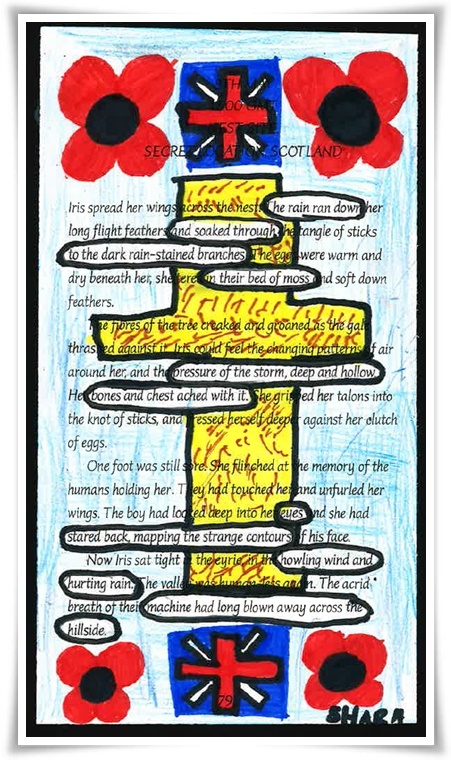 GMT
NEST SITE
SECRET LOCATION SCOTLAND
Iris spread her wings across the nest. The rain ran down her
long flight feathers and soaked through the tangle of sticks
to the dark rain-stained branches. The eggs were warm and
dry beneath her, safe in their bed of moss and soft down
feathers.
The fibres of the tree creaked and groaned as the gale
thrashed against it. Iris could feel the changing patterns of air
around her, and the pressure of the storm, deep and hollow.
Her bones and chest ached with it. She gripped her talons into
the knot of sticks, and pressed herself deeper against her clutch
of eggs.
One foot was still sore. She flinched at the memory of the
humans holding her. They had touched her and unfurled her
wings. The boy had looked deep into her eyes and she had
stared back, mapping the strange contours of his face.
Now Iris sat tight in the eyrie, in the howling wind and
hurting rain. The valley was human-less again. The acrid
breath of their machine had long blown away across the
hillside.
79
SHARA